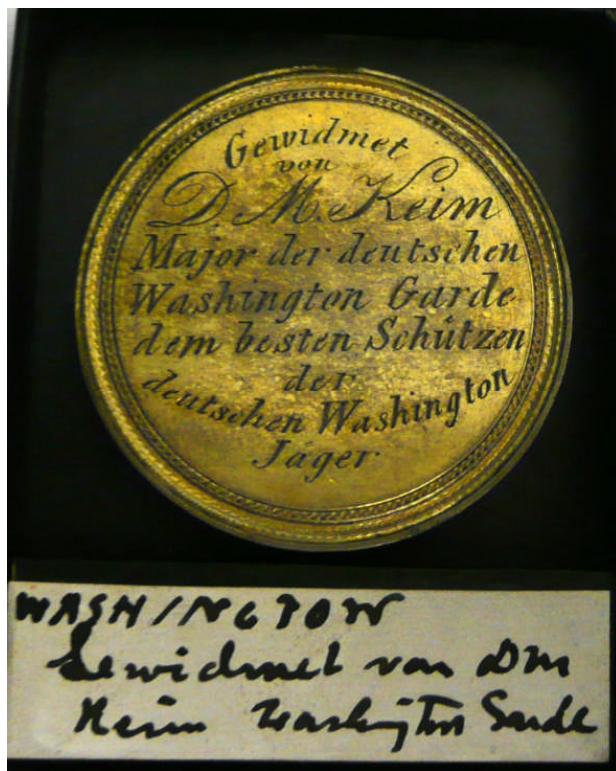 Gewidmet
von
D. M. Keim
Major der deutschen
Washington Garde
dem besten Schützen
der
deutschen Washington
Jäger
WASHINGTON
Gewidmet von DM
Keim Washington Garde